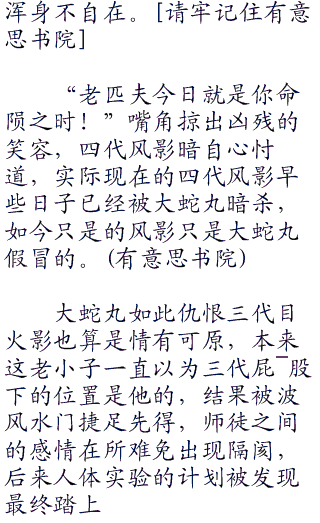 浑身不自在。[请牢记住有意
思书院]
“老匹夫今日就是你命
陨之时！”嘴角掠出凶残的
笑容，四代风影暗自心忖
道，实际现在的四代风影早
些日子已经被大蛇丸暗杀，
如今只是的风影只是大蛇丸
假冒的。(有意思书院)
大蛇丸如此仇恨三代目
火影也算是情有可原，本来
这老小子一直以为三代屁¯股
下的位置是他的，结果被波
风水门捷足先得，师徒之间
的感情在所难免出现隔阂，
后来人体实验的计划被发现
最终踏上